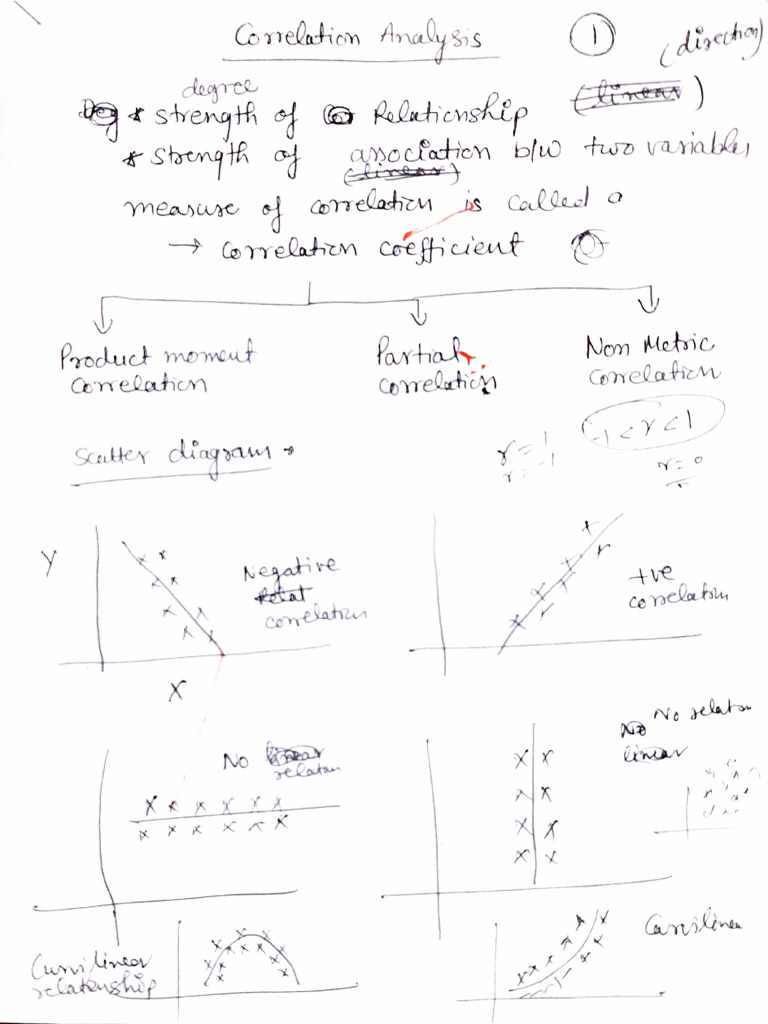 Correlation Analysis
1
(direction)
degree
* strength of Relationship (linear)
* strength of association b/w two variables
(linear)
measure of correlation is called a
→ correlation coefficient
Product moment
correlation
Partial
correlation
Non Metric
correlation
-1 < r < 1
Scatter diagram
r = 1
r = -1
r = 0
Y
Negative
Relat
correlation
X
+ve
correlation
No linear
relation
No No relation
linear
Curvilinear
relationship
Curvilinea